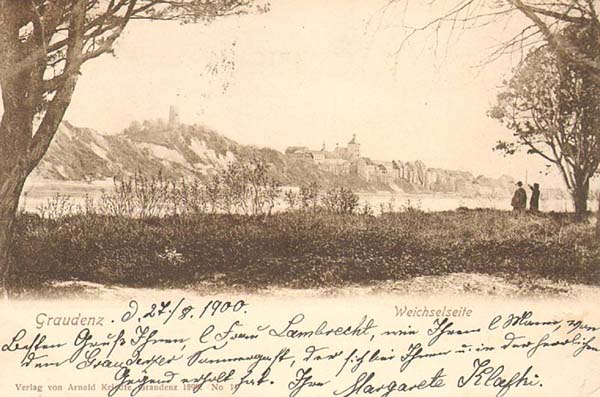 Graudenz
d. 27/8. 1900.
Weichselseite
Besten Gruß Ihnen, l. Frau Lambrecht, wie Ihrem l. Mann, von
dem Graudenzer Sommergast, der sich bei Ihnen u. in der herrlichen
Gegend erholt hat. Ihre Margarete
Verlag von Arnold Kriedte, Graudenz 1898. No